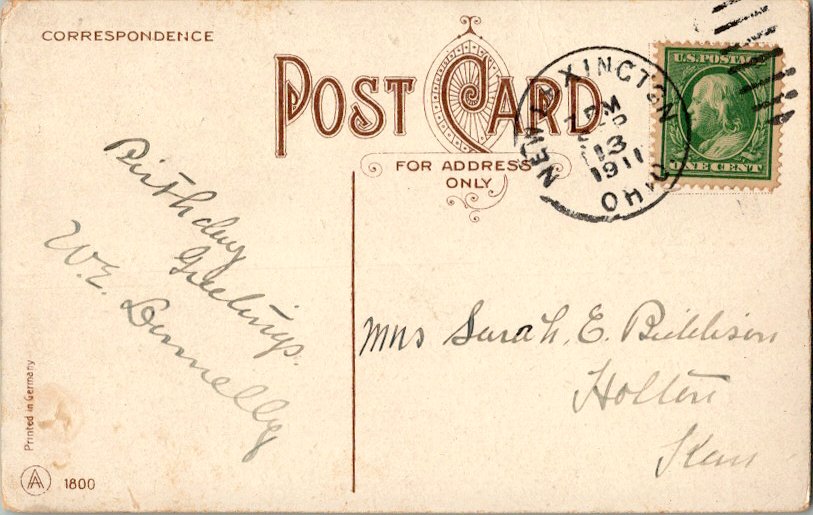 CORRESPONDENCE
POST CARD
FOR ADDRESS
ONLY
NEW LEXINGTON OHIO
PM
13
1911
U.S. POSTAGE
ONE CENT
Birthday
Greetings.
W.E. Donnelly
Mrs Sarah, E.
Holton
Kan
Printed in Germany
AA 1800